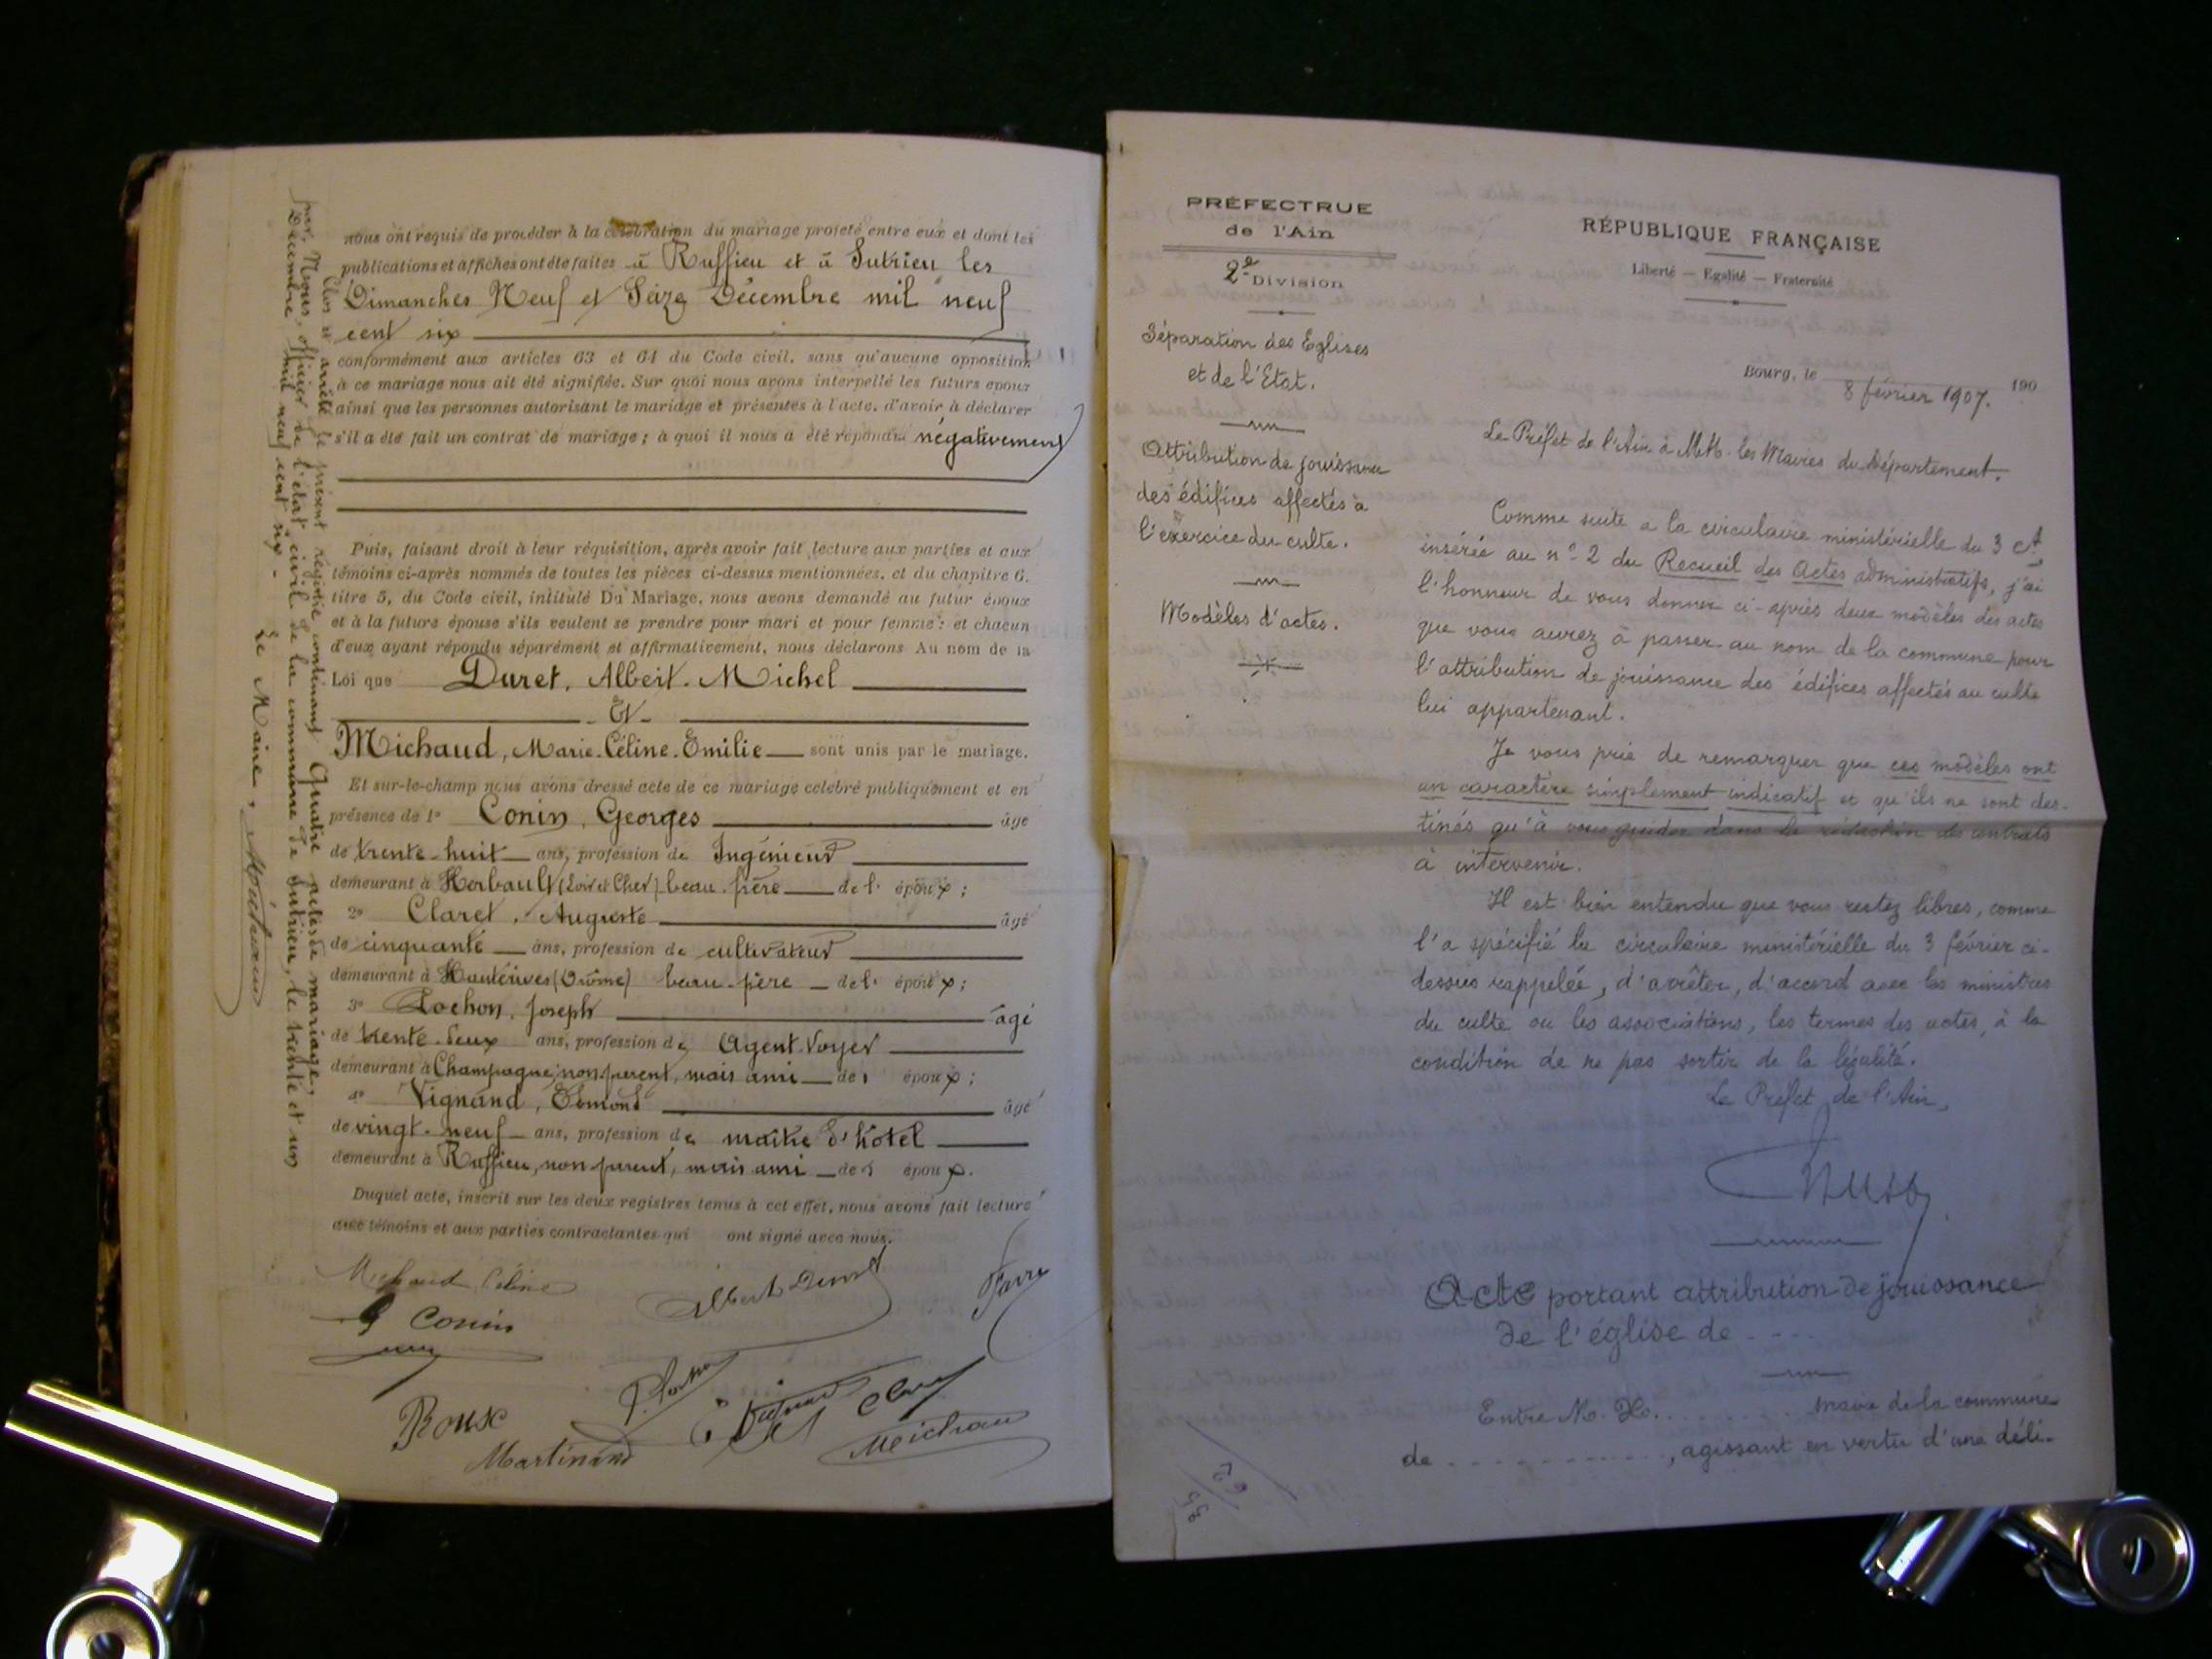 nous ont requis de procéder à la célébration du mariage projeté entre eux et dont les
publications et affiches ont été faites à Ruffieu et à Sutrieu les
Dimanches Neuf et Seize Décembre mil neuf
cent six
conformément aux articles 63 et 64 du Code civil, sans qu'aucune opposition
à ce mariage nous ait été signifiée. Sur quoi nous avons interpellé les futurs époux
ainsi que les personnes autorisant le mariage et présentes à l'acte, d'avoir à déclarer
s'il a été fait un contrat de mariage ; à quoi il nous a été répondu négativement
Puis, faisant droit à leur réquisition, après avoir fait lecture aux parties et aux
témoins ci-après nommés de toutes les pièces ci-dessus mentionnées, et du chapitre 6,
titre 5, du Code civil, intitulé Du Mariage, nous avons demandé au futur époux
et à la future épouse s'ils veulent se prendre pour mari et pour femme : et chacun
d'eux ayant répondu séparément et affirmativement, nous déclarons Au nom de la
Loi que Duret, Albert-Michel
- Et -
Michaud, Marie-Céline-Emilie sont unis par le mariage.
Et sur-le-champ nous avons dressé acte de ce mariage célébré publiquement et en
présence de 1º Conin, Georges âgé
de trente-huit ans, profession de Ingénieur
demeurant à Herbault (Loir et Cher) beau-frère de l' époux ;
2º Claret, Auguste âgé
de cinquante ans, profession de cultivateur
demeurant à Hauterives (Drôme) beau-père de l' époux ;
3º Lochon, Joseph âgé
de trente-deux ans, profession de Agent-Voyer
demeurant à Champagne, non parent, mais ami de s époux ;
4º Vignand, Edmond âgé
de vingt-neuf ans, profession de maître d'hôtel
demeurant à Ruffieu, non parent, mais ami de s époux.
Duquel acte, inscrit sur les deux registres tenus à cet effet, nous avons fait lecture
aux témoins et aux parties contractantes qui ont signé avec nous.
Michaud Céline
Albert Duret
Favre
G Conin
Roux
Martinand
Clos et arrêté le présent registre contenant Quatre actes de mariage,
par, Nous, officier de l'état civil de la commune de Sutrieu, le trente et un
Décembre mil neuf cent six.
Le Maire,
PRÉFECTRUE
de l'Ain
2e Division
Séparation des Eglises
et de l'Etat.
Attribution de jouissance
des édifices affectés à
l'exercice du culte.
Modèles d'actes.
RÉPUBLIQUE FRANÇAISE
Liberté — Egalité — Fraternité
Bourg, le 8 février 1907. 190
Le Préfet de l'Ain à M.M. les Maires du Département.
Comme suite à la circulaire ministérielle du 3 ct,
insérée au nº 2 du Recueil des Actes administratifs, j'ai
l'honneur de vous donner ci-après deux modèles des actes
que vous aurez à passer au nom de la commune pour
l'attribution de jouissance des édifices affectés au culte
lui appartenant.
Je vous prie de remarquer que ces modèles ont
un caractère simplement indicatif et qu'ils ne sont des-
tinés qu'à vous guider dans la rédaction de contrats
à intervenir.
Il est bien entendu que vous restez libres, comme
l'a spécifié la circulaire ministérielle du 3 février ci-
dessus rappelée, d'arrêter, d'accord avec les ministres
du culte ou les associations, les termes des actes, à la
condition de ne pas sortir de la légalité.
Le Préfet de l'Ain,
Acte portant attribution de jouissance
de l'église de ....
Entre M. X. ........ maire de la commune
de ............, agissant en vertu d'une déli-